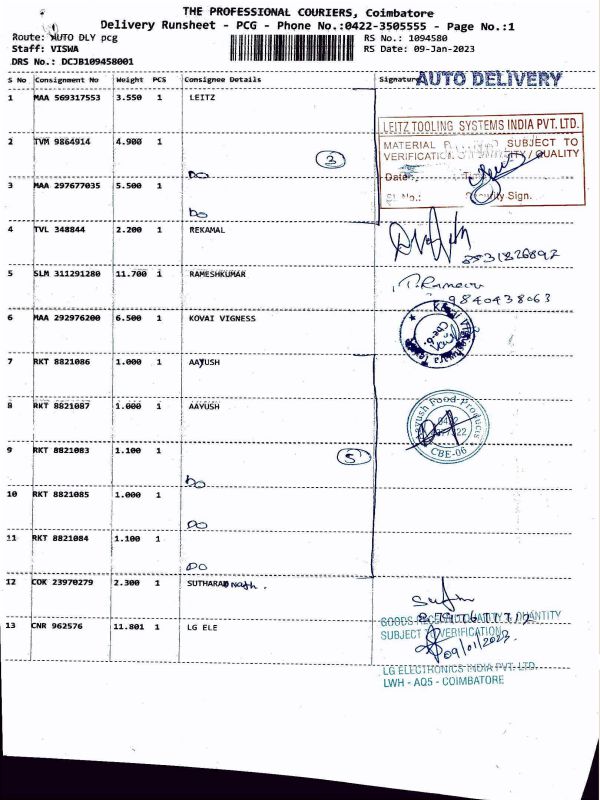 THE PROFESSIONAL COURIERS, Coimbatore
Delivery Runsheet - PCG - Phone No.:0422-3505555 - Page No.:1
Route: AUTO DLY pcg
RS No.: 1094580
Staff: VISWA
RS Date: 09-Jan-2023
DRS No.: DCJB109458001
S No Consignment No Weight PCS Consignee Details Signature
AUTO DELIVERY
1 MAA 569317553 3.550 1 LEITZ
LEITZ TOOLING SYSTEMS INDIA PVT. LTD.
2 TVM 9864914 4.900 1
MATERIAL SUBJECT TO
VERIFICATION QUANTITY / QUALITY
3
Do
Date:
3 MAA 297677035 5.500 1
Sl. No.: Security Sign.
Do
4 TVL 348844 2.200 1 REKAMAL
8831826892
5 SLM 311291280 11.700 1 RAMESHKUMAR
T. Ramesh
9840438063
6 MAA 292976200 6.500 1 KOVAI VIGNESS
7 RKT 8821086 1.000 1 AAYUSH
8 RKT 8821087 1.000 1 AAYUSH
Aayush Food Products
CBE-06
9 RKT 8821083 1.100 1
5
Do
10 RKT 8821085 1.000 1
Do
11 RKT 8821084 1.100 1
Do
12 COK 23970279 2.300 1 SUTHARAD nath.
13 CNR 962576 11.801 1 LG ELE
GOODS RECEIVED QUALITY & QUANTITY
SUBJECT TO VERIFICATION
09/01/2023
LG ELECTRONICS INDIA PVT. LTD.
LWH - AQ5 - COIMBATORE